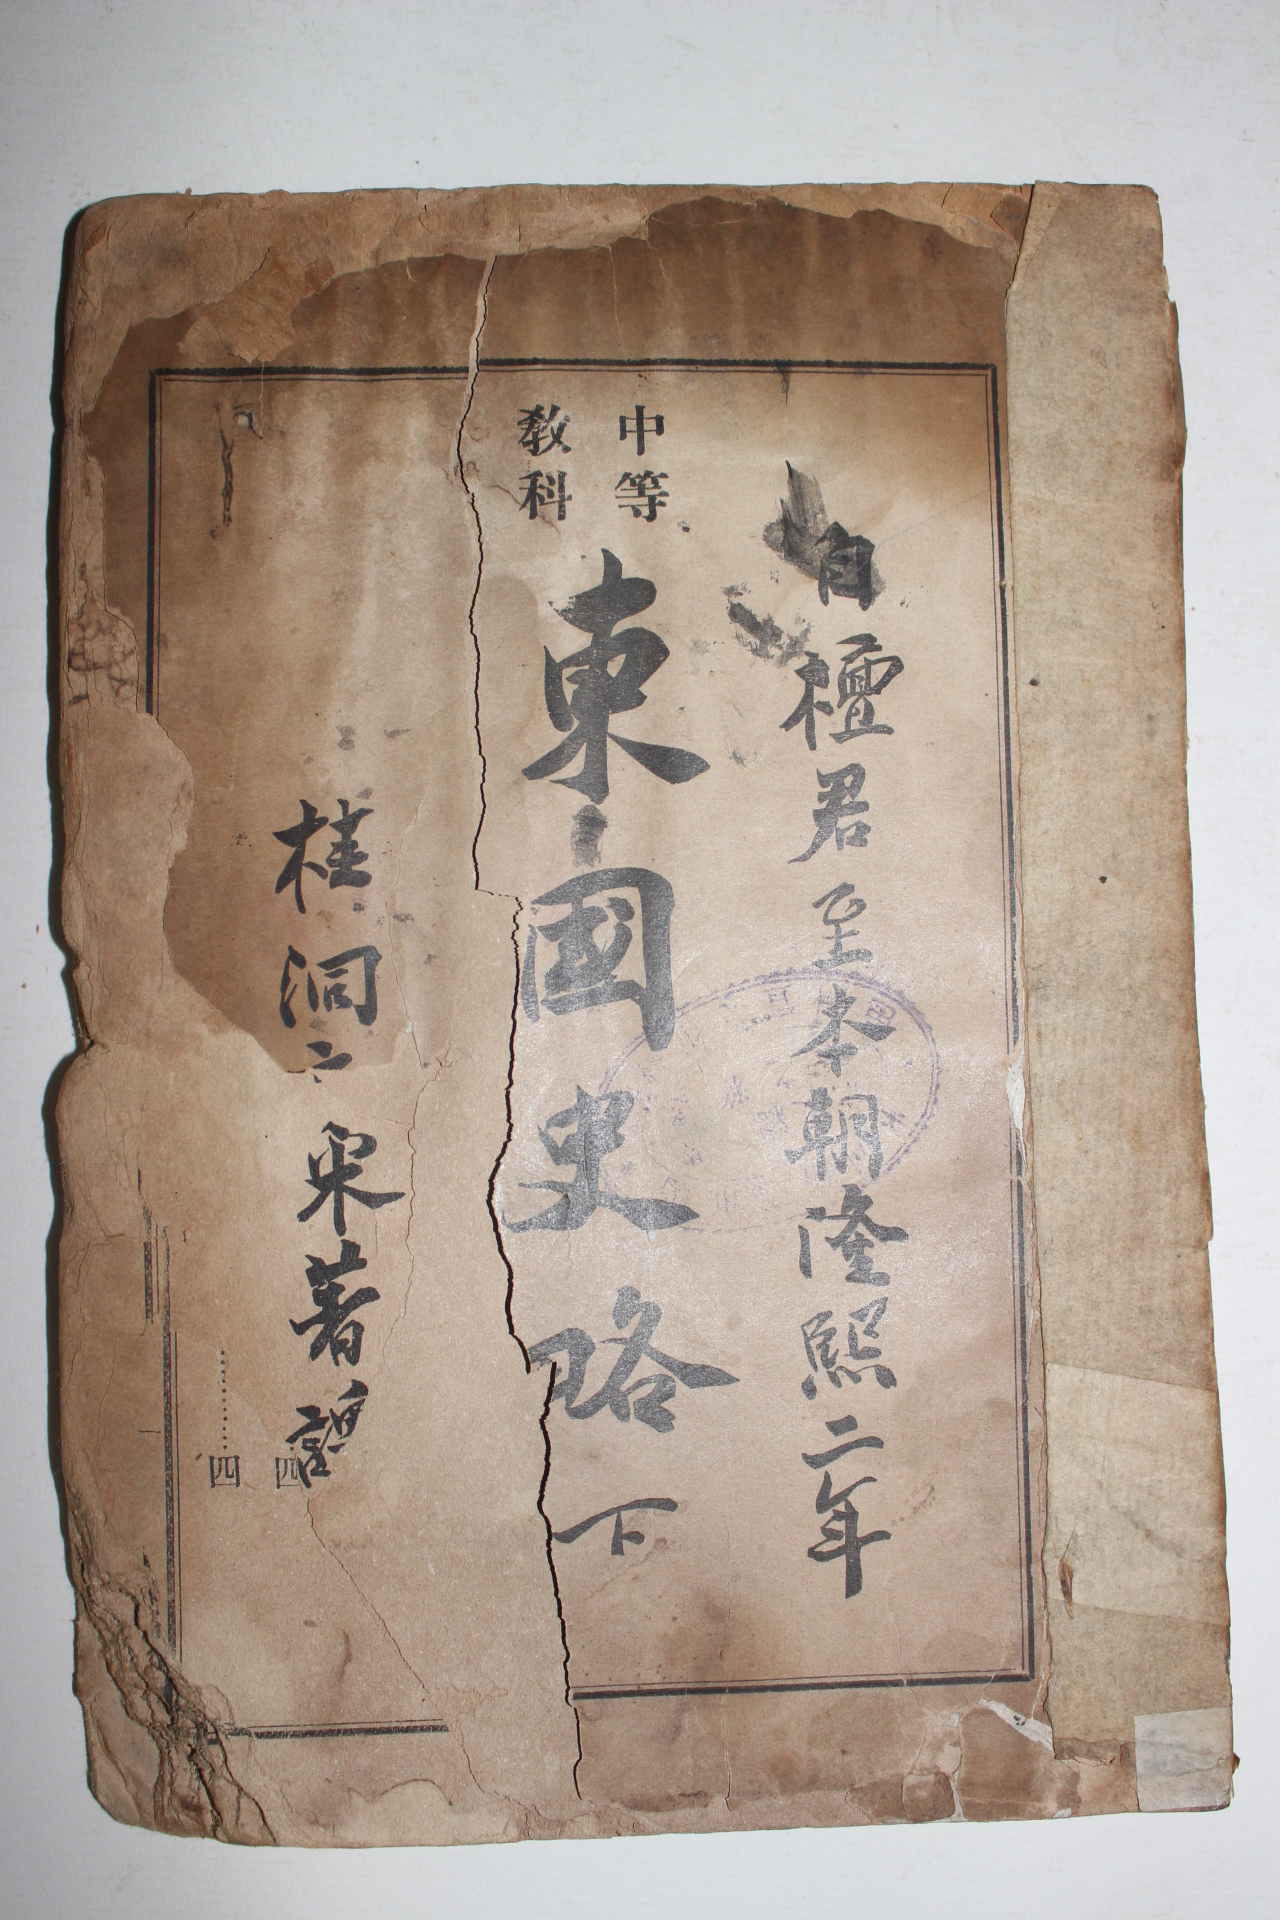 自檀君至本朝隆熙二年
中等
教科
東國史略 下
桂洞
宋著
四
四